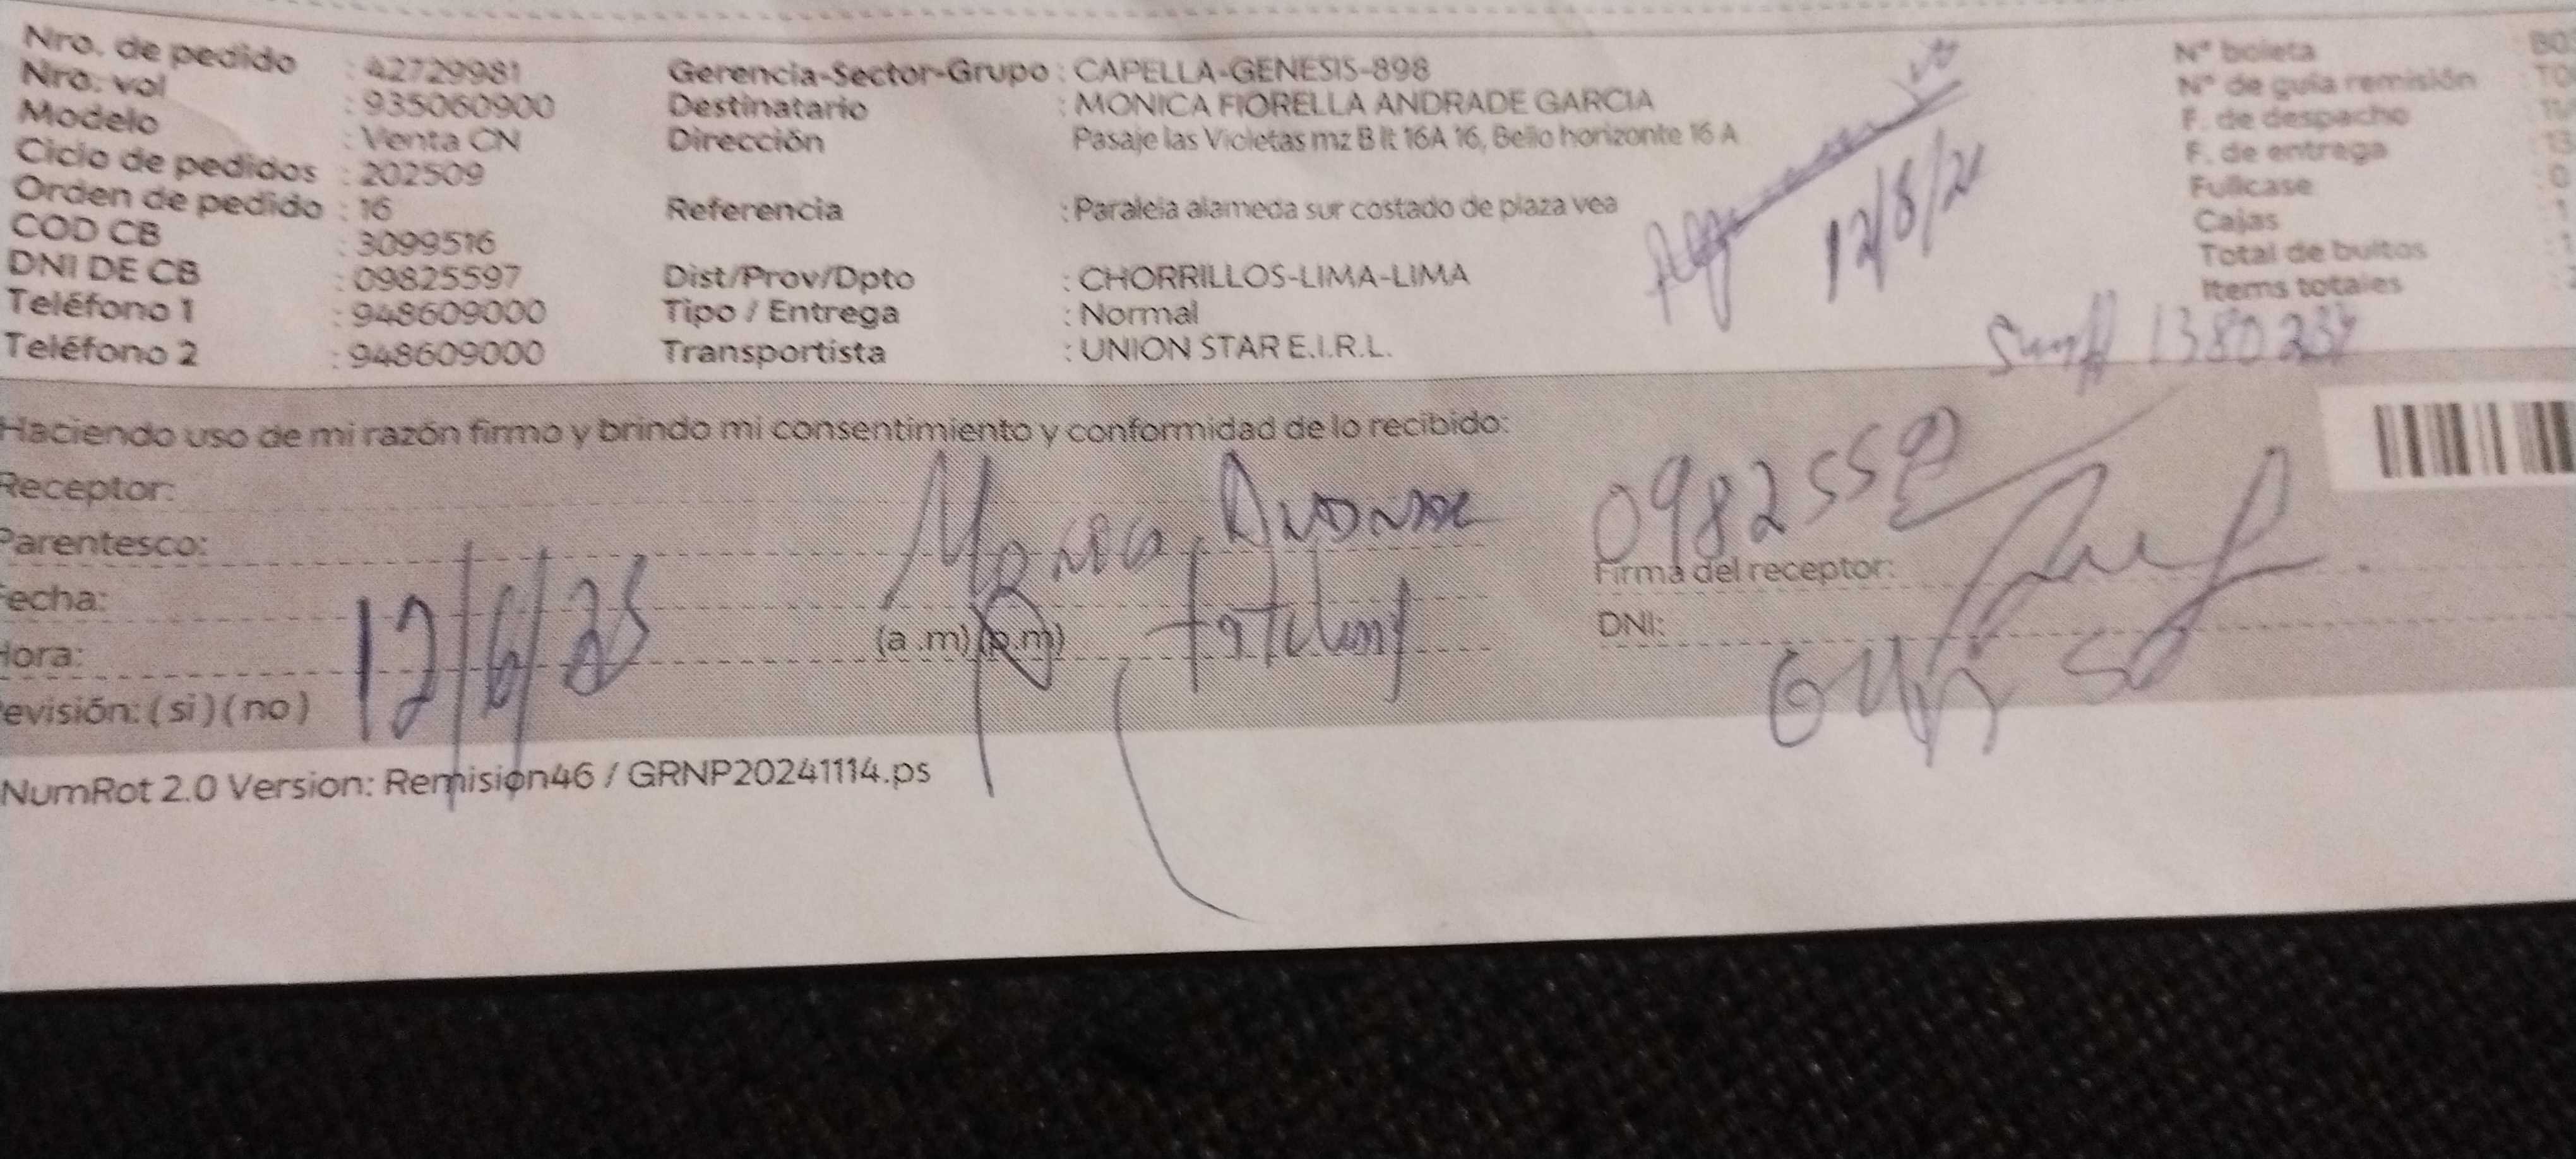 Nro. de pedido : 42729981
Nro. vol : 935060900
Modelo : Venta CN
Ciclo de pedidos : 202509
Orden de pedido : 16
COD CB : 3099516
DNI DE CB : 09825597
Teléfono 1 : 948609000
Teléfono 2 : 948609000
Gerencia-Sector-Grupo : CAPELLA-GENESIS-898
Destinatario : MONICA FIORELLA ANDRADE GARCIA
Dirección Pasaje las Violetas mz B lt 16A 16, Bello horizonte 16 A
Referencia : Paralela alameda sur costado de plaza vea
Dist/Prov/Dpto : CHORRILLOS-LIMA-LIMA
Tipo / Entrega : Normal
Transportista : UNION STAR E.I.R.L.
12/8/2
N° boleta : B0
N° de guía remisión : T0
F. de despacho
F. de entrega : 13
Fullcase : 0
Cajas : 1
Total de bultos : 1
Items totales
Haciendo uso de mi razón firmo y brindo mi consentimiento y conformidad de lo recibido:
Receptor:
Monica Andrade
Parentesco:
Fecha:
12/6/25
Hora:
(a.m) (p.m)
evisión: ( si ) ( no )
Firma del receptor:
DNI:
NumRot 2.0 Version: Remision46 / GRNP20241114.ps